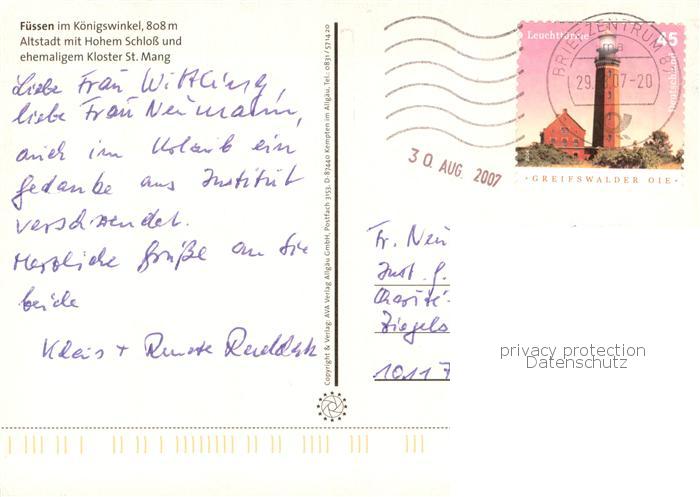 Füssen im Königswinkel, 808 m
Altstadt mit Hohem Schloß und
ehemaligem Kloster St. Mang
Liebe Frau Wittling,
liebe Frau Neumann,
auch im Urlaub ein
Gedanke ans Institut
verschwendet.
Herzliche Grüße an Sie
beide
Klaus + Renate
Copyright & Verlag: AVA Verlag Allgäu GmbH, Postfach 3153, D-87440 Kempten im Allgäu, Tel.: 0831/571420
Leuchttürme
45
Deutschland
GREIFSWALDER OIE
BRIEFZENTRUM 8
ma
29. 07-20
30 AUG. 2007
Fr. Neu
Inst. f.
Charité-
Ziegels
10117
privacy protection
Datenschutz